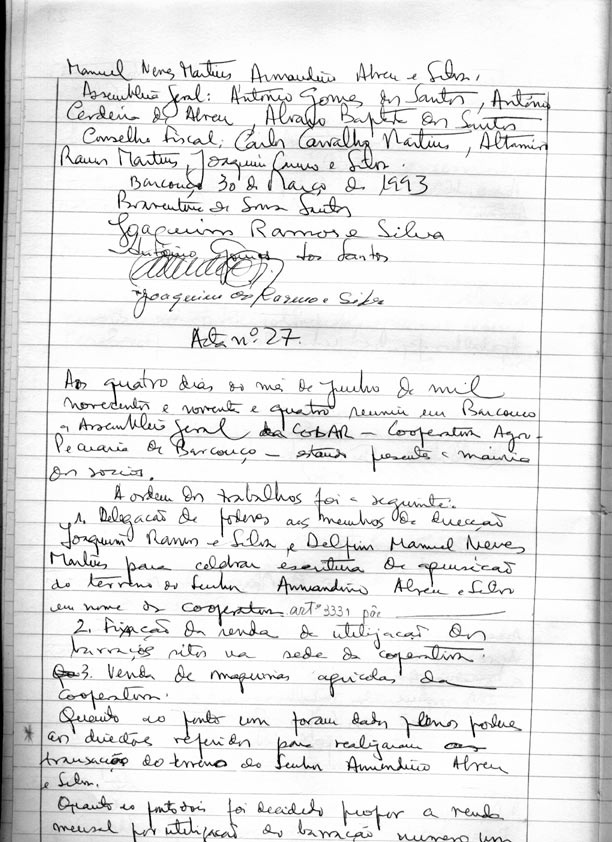 Manuel Neves Martins Armandino Abreu e Silva.
Assembleia Geral: António Gomes dos Santos, António
Cerdeira de Abreu, Alvaro Baptista dos Santos
Conselho Fiscal: Carlos Carvalho Martins, Altamiro
Ramos Martins, Joaquim e Silva.
Barcouço 30 de Março de 1993
Boaventura de Sousa Santos
Joaquim Ramos e Silva
António Gomes dos Santos
Joaquim Ramos e Silva
Acta nº. 27.
Aos quatro dias do mês de Junho de mil
novecentos e noventa e quatro reuniu em Barcouço
a Assembleia Geral da COBAR - Cooperativa Agro-
Pecuaria de Barcouço - estando presente a maioria
dos socios.
A ordem dos trabalhos foi a seguinte:
1. Delegação de poderes aos membros da direcção
Joaquim Ramos e Silva e Delfim Manuel Neves
Martins para celebrar escritura de aquisição
do terreno do Senhor Armandino Abreu e Silva
em nome da cooperativa. artº 3331
2. Fixação da renda de utilização dos
barracões sitos na sede da cooperativa.
3. Venda de maquinas agricolas da
Cooperativa.
Quanto ao ponto um foram dados plenos poderes
aos directores referidos para realizarem a
transacção do terreno do Senhor Armandino Abreu
e Silva.
Quanto ao ponto dois foi decidido propor a renda
mensal por utilização do barracão numero um